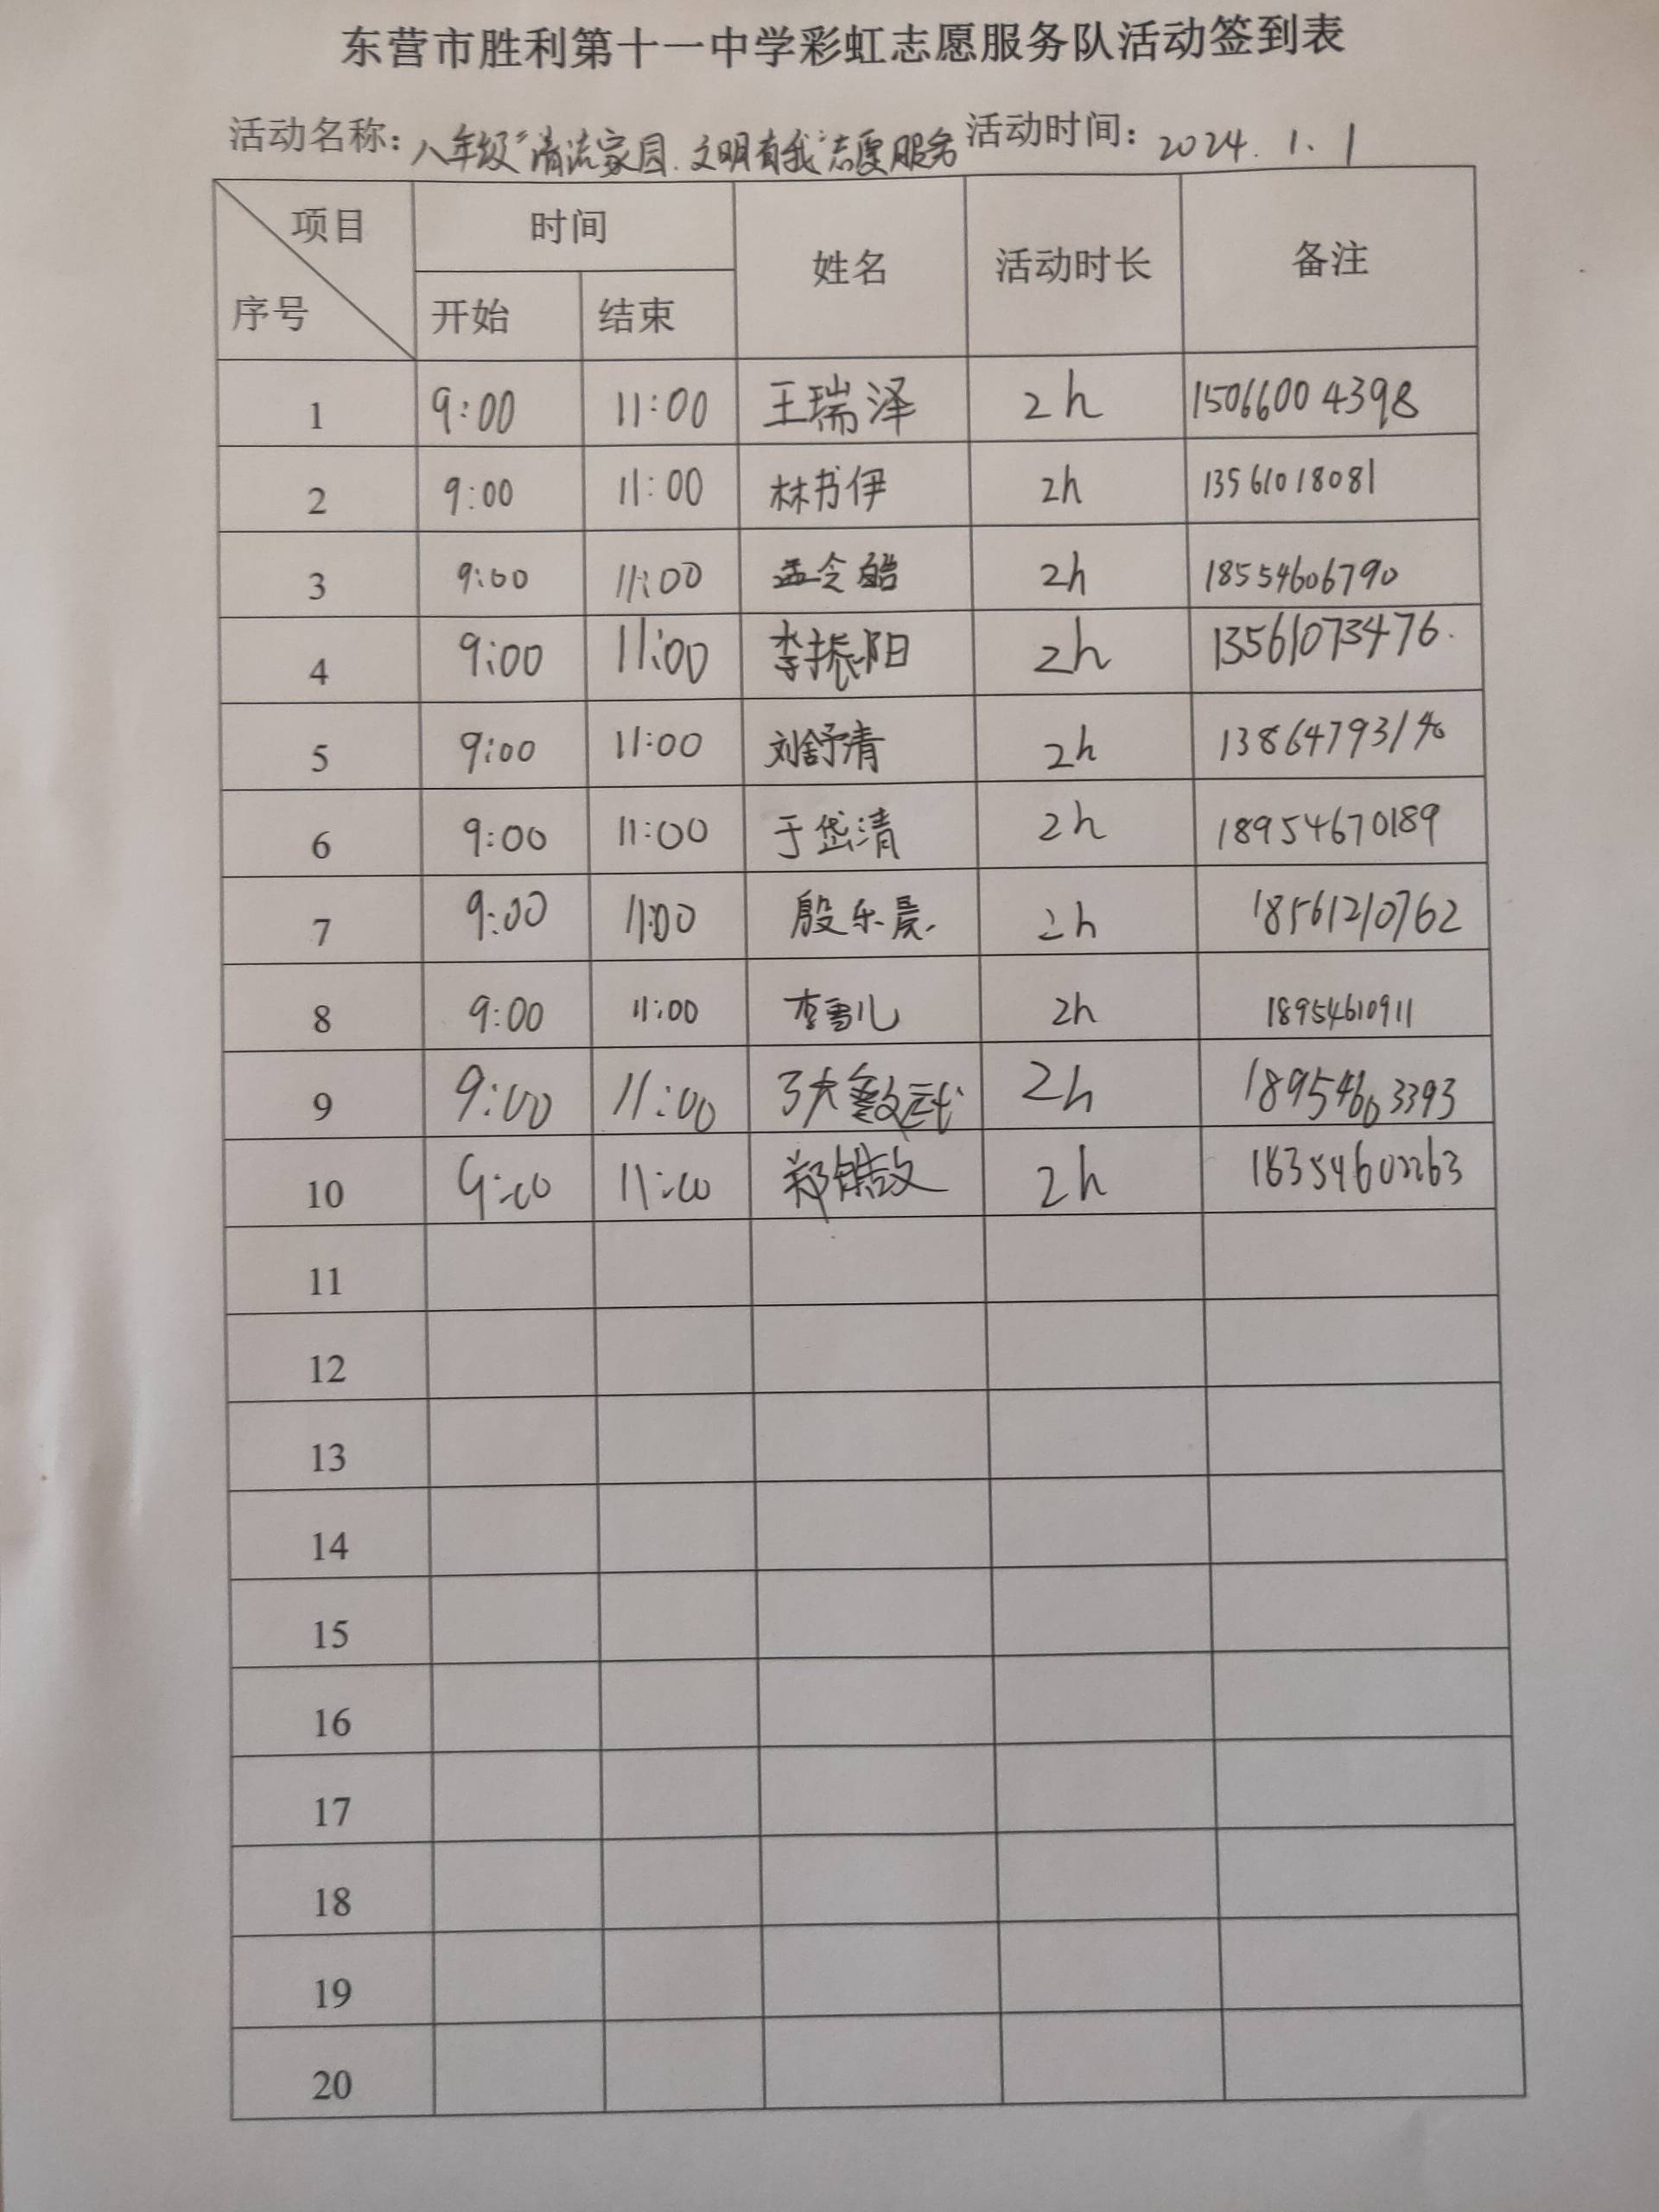 东营市胜利第十一中学彩虹志愿服务队活动签到表
活动名称：八年级“清流家园.文明有我”志愿服务 活动时间：2024.1.1
项目 时间 姓名 活动时长 备注
序号 开始 结束
1 9:00 11:00 王瑞泽 2h 15066004398
2 9:00 11:00 林书伊 2h 13561018081
3 9:00 11:00 孟令皓 2h 18554606790
4 9:00 11:00 李振阳 2h 13561073476.
5 9:00 11:00 刘舒清 2h
6 9:00 11:00 于岱清 2h 18954670189
7 9:00 11:00 殷乐晨. 2h 18561210762
8 9:00 11:00 李雪儿 2h 18954610911
9 9:00 11:00 2h 18954663393
10 9:00 11:00 郑皓文 2h
11
12
13
14
15
16
17
18
19
20